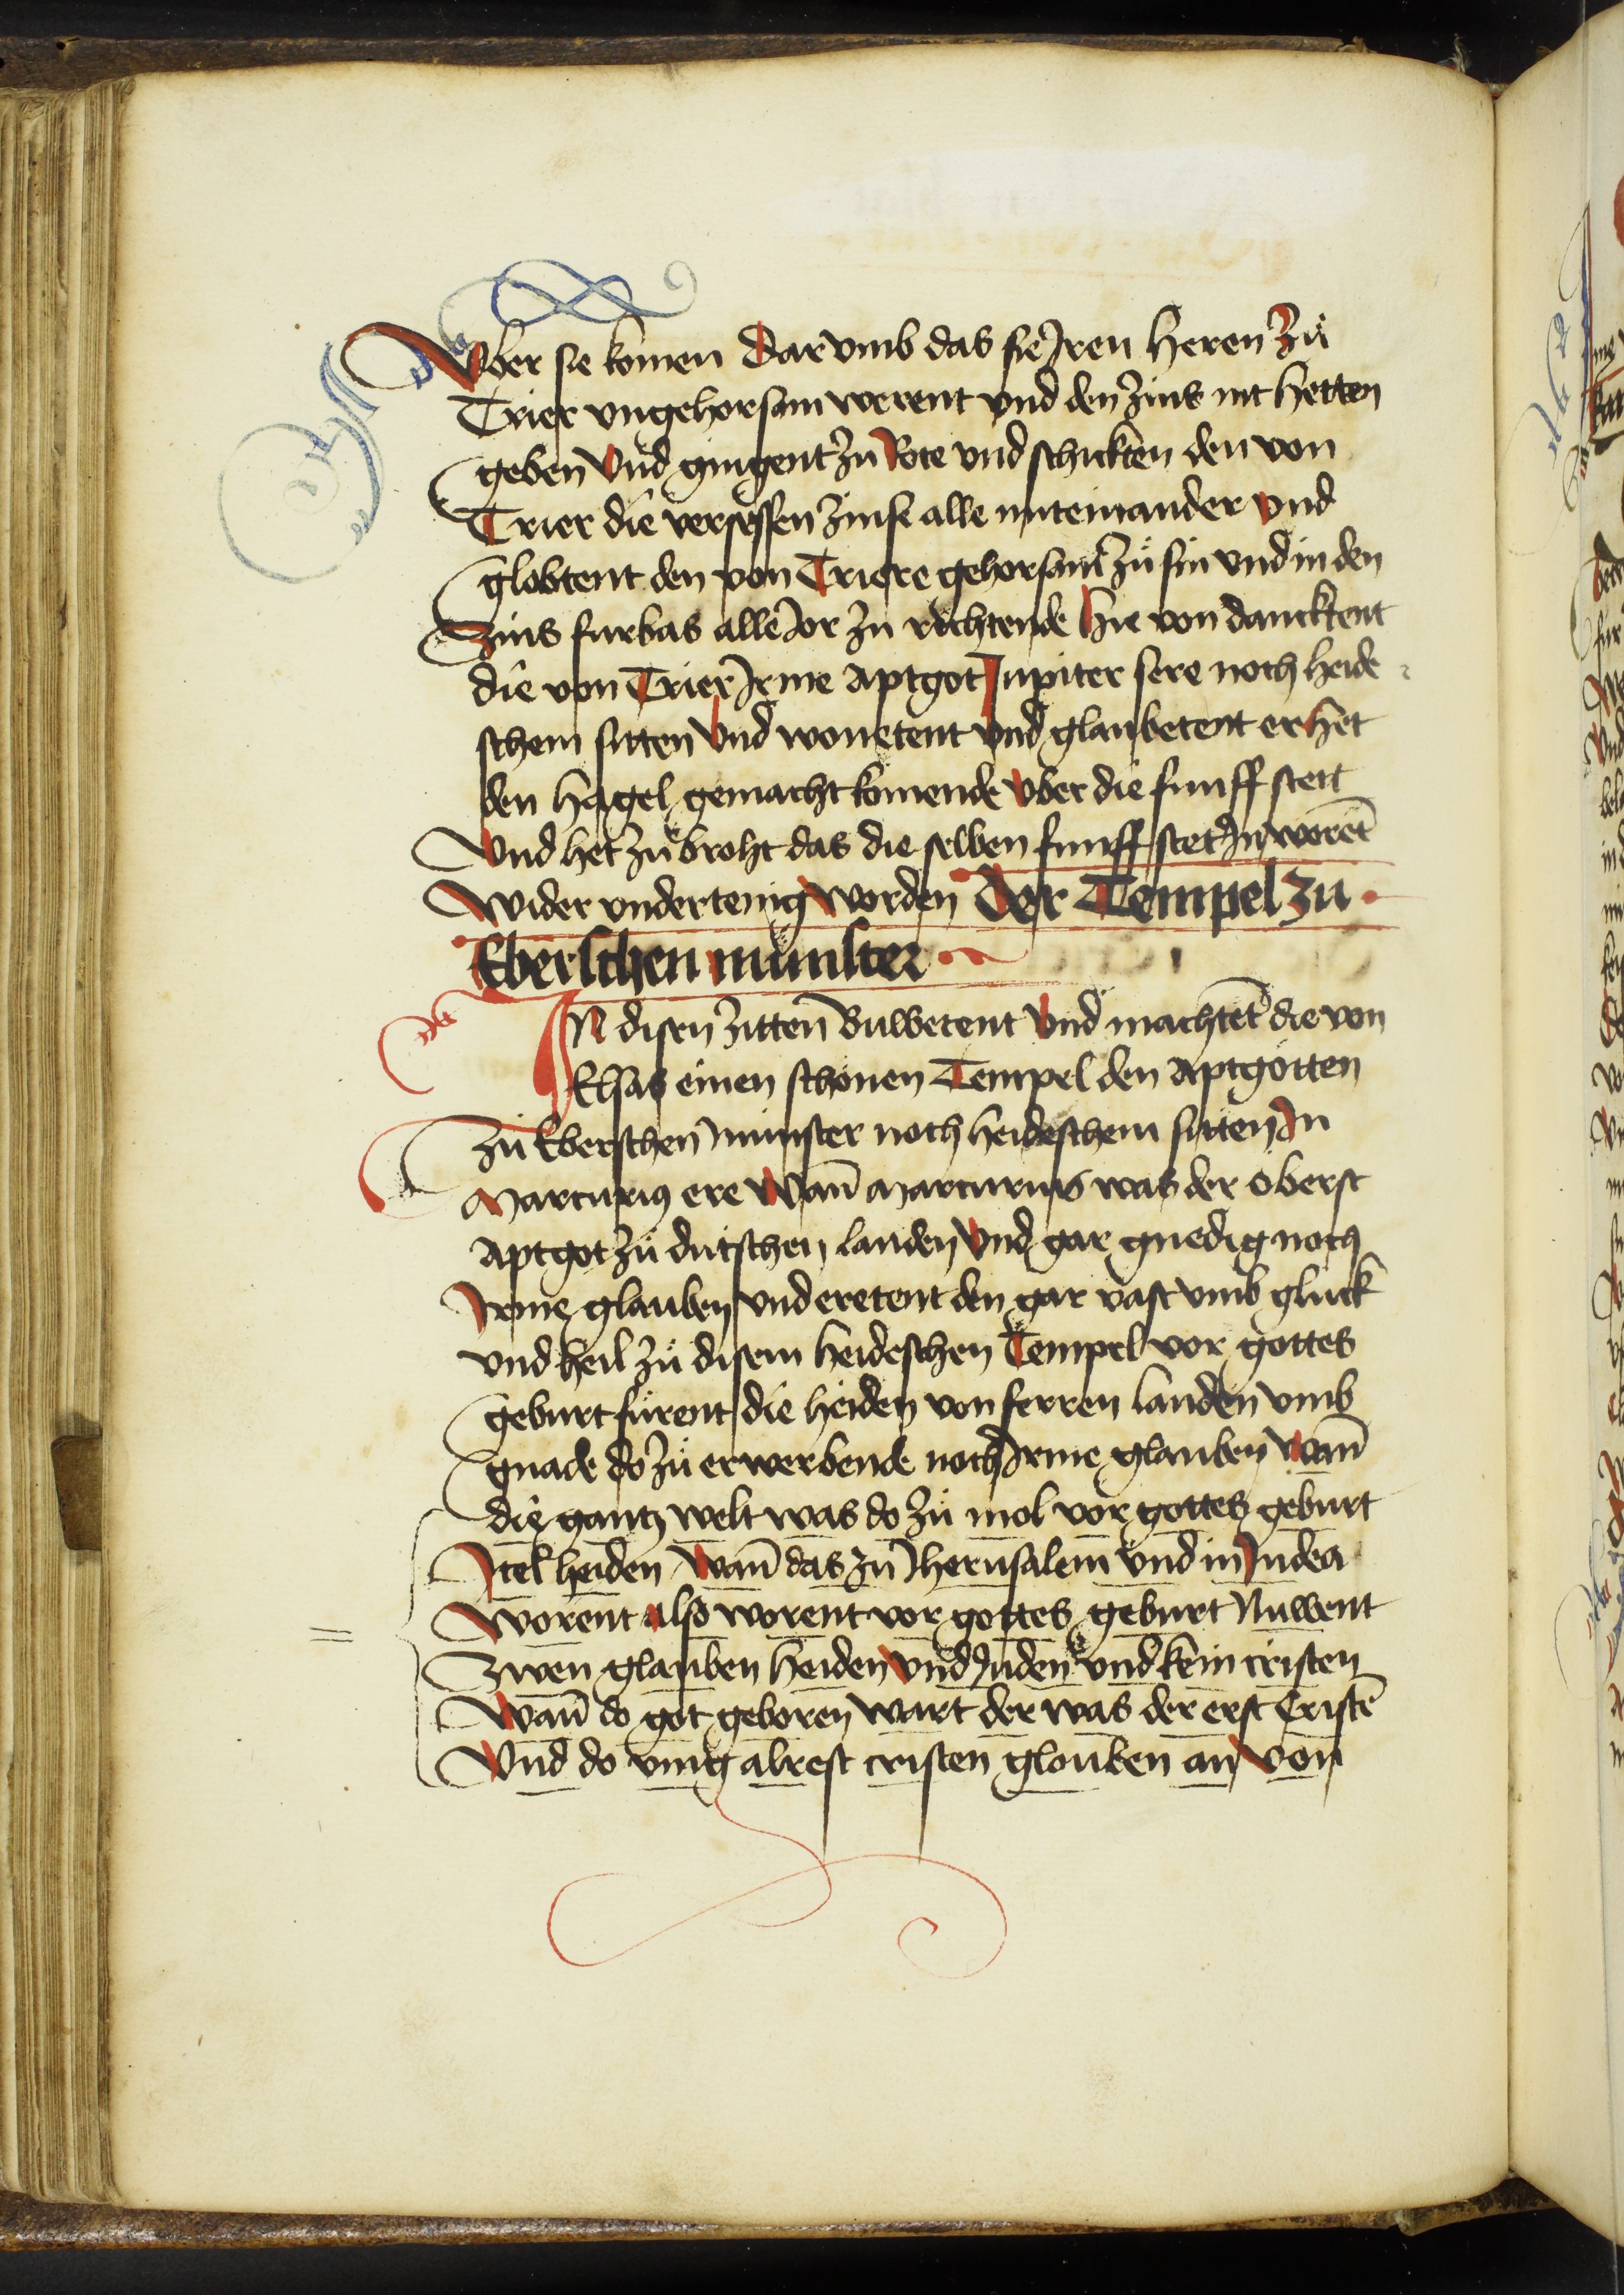 Vber sie komen Dar vmb das sie Jren Heren Zů
Trier vngehorsam werent vnd den Zins nit hetten
geben Vnd gingent zu Rote vnd schickten den von
Trier die versessen Zinse alle miteinander vnd
globtent den von Triere gehorsam zů sin vnd in den
Zins furbas alle Jor zu richtende Hie von dancktent
die von Trier Jrme Aptgot Jupiter sere noch heide
schem sitten Vnd wonetent vnd glaubetent er het
den Hagel gemacht komende vber die funff stett
Vnd het zů broht das die selben funff stet Jn worēt
Wider vndertenig worden Der Tempel zu
Eberschen munster
IN disen zitten Buwetent Vnd machtēt die von
Elsas einen schönen Tempel den Aptgötten
zů Eberschen munster noch heideschem sitten Jn
Marcurius ere Wan̄ Marcurius was der oberst
Aptgot zů dutschen landen Vnd gar gnedig noch
Jrme glauben vnd eretent den gar vast vmb gluck
vnd heil zů disem heideschen Tempel vor gottes
geburt fürent die heiden von ferren landen vmb
gnade do zů erwerbende noch Jrme glauben Wan̄
die gantz welt was do zů mol vor gottes geburt
Jtel heiden Wan̄ das zu Jherusalem vnd in Judea
Worent Also worent vor gottes geburt Nuwent
Zwen glauben Heiden Vnd Juden vnd kein cristen
Wan̄ do got geboren wart der was der erst Cristē
Vnd do ving alrest cristen glouben an Von